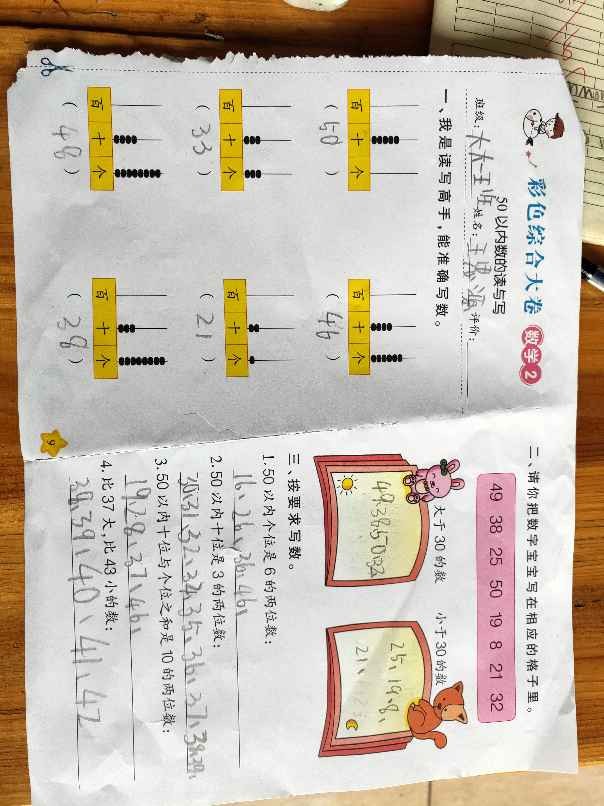 彩色综合大卷 数学2
50以内数的读与写
班级：大大一班 姓名：王思涵 评价：
一、我是读写高手，能准确写数。
百 十 个
（50）
百 十 个
（46）
百 十 个
（33）
百 十 个
（21）
百 十 个
（48）
百 十 个
（38）
9
二、请你把数字宝宝写在相应的格子里。
49 38 25 50 19 8 21 32
大于30的数 小于30的数
49、38、50、32
25、19、8、
21、
三、按要求写数。
1.50以内个位是6的两位数：
16、26、36、46、
2.50以内十位是3的两位数：
30、31、32、33、34、35、36、37、38、39、
3.50以内十位与个位之和是10的两位数：
19、28、37、46、
4.比37大，比43小的数：
38、39、40、41、42